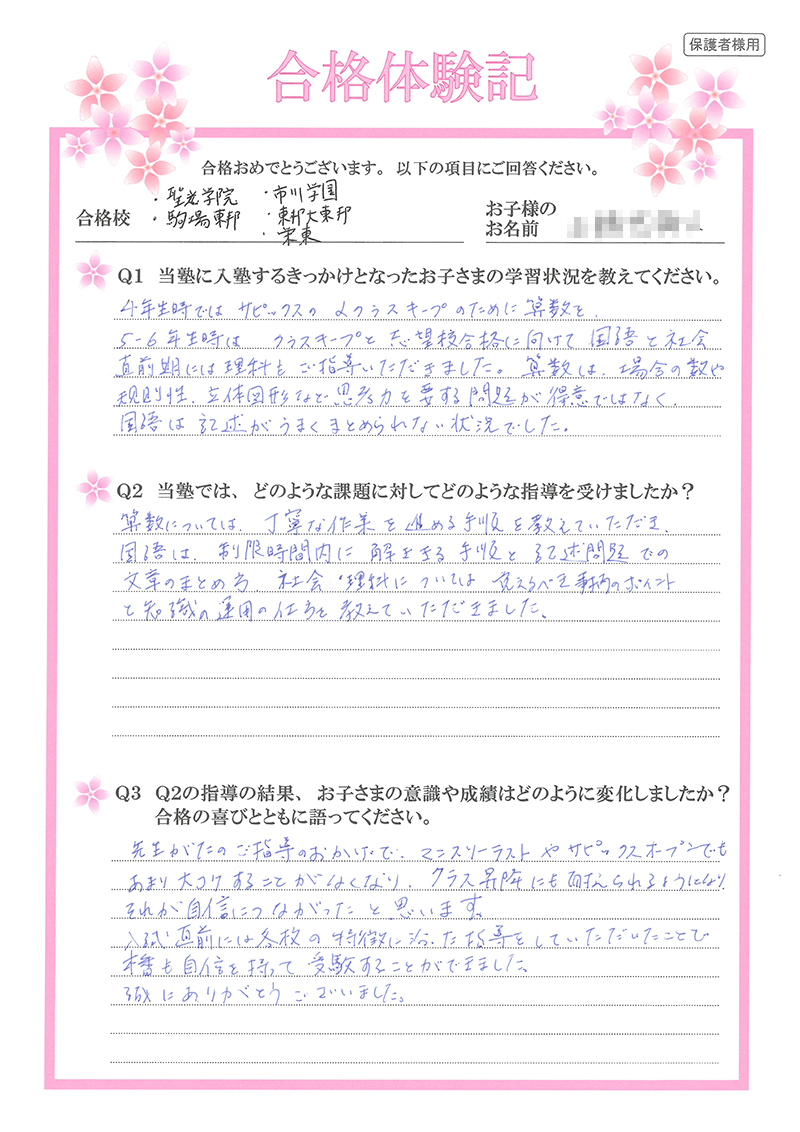 保護者様用
合格体験記
合格おめでとうございます。以下の項目にご回答ください。
合格校
・聖光学院 ・市川学園
・駒場東邦 ・東邦大東邦
・栄東
お子様の
お名前
Q1 当塾に入塾するきっかけとなったお子さまの学習状況を教えてください。
4年生時では サピックスの αクラスキープのために 算数を、
5-6年生時は クラスキープと 志望校合格に向けて 国語と社会
直前期には理科も ご指導いただきました。算数は、場合の数や
規則性、立体図形など 思考力を要する問題が得意ではなく、
国語は 記述がうまくまとめられない状況でした。
Q2 当塾では、どのような課題に対してどのような指導を受けましたか？
算数については、丁寧な作業を進める手順を教えていただき、
国語は、制限時間内に 解ききる 手順と 記述問題での
文章のまとめ方、社会・理科については 覚えるべき事柄のポイント
と知識の運用の仕方を教えていただきました。
Q3 Q2の指導の結果、お子さまの意識や成績はどのように変化しましたか？
合格の喜びとともに語ってください。
先生がたのご指導のおかげで、マンスリーテストやサピックスオープンでも
あまり大コケすることがなくなり、クラス昇降にも耐えられるようになり、
それが自信につながったと思います。
入試直前には各校の特徴に沿った指導をしていただいたことで
本番も自信を持って 受験することができました。
誠にありがとうございました。